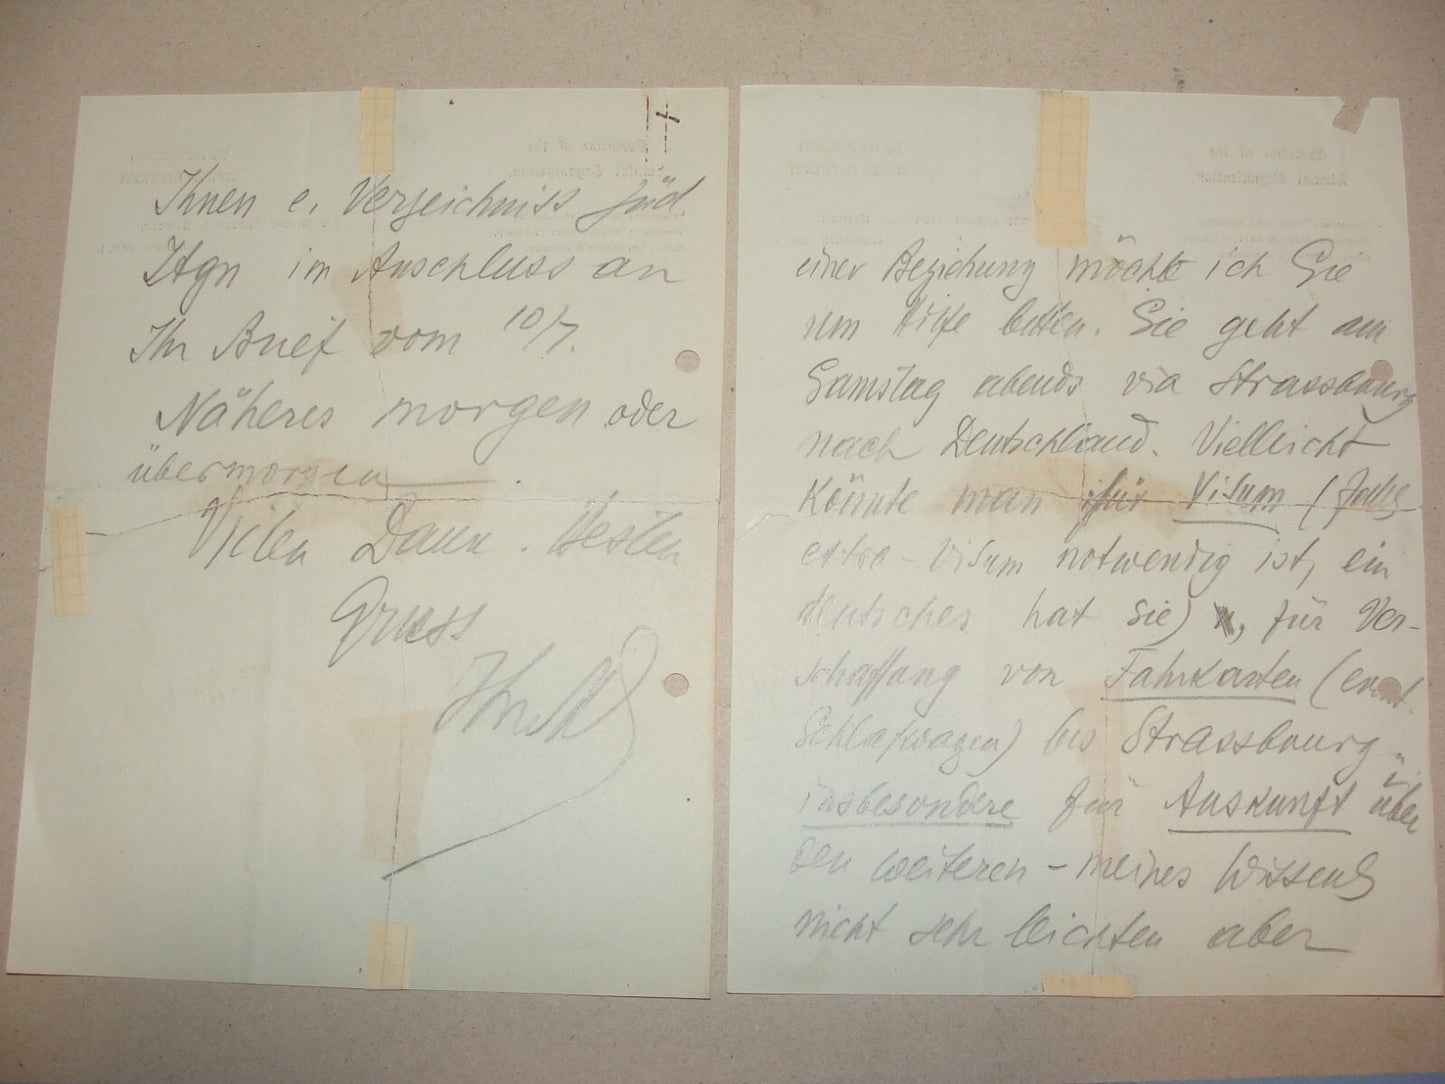 Ihnen e. Verzeichniss jüd
Ztgn im Anschluss an
Ihr Brief vom 10/7.
Näheres morgen oder
übermorgen.
Vielen Dank. Besten
Gruss
einer Beziehung möchte ich Sie
um Hilfe bitten. Sie geht am
Samstag abends via Strassbourg
nach Deutschland. Vielleicht
könnte man für Visum (falls
extra-Visum notwendig ist, ein
deutsches hat sie), für Ver-
schaffung von Fahrkarten (event.
Schlafwagen) bis Strassbourg
insbesondere für Auskunft über
den weiteren - meines Wissens
nicht sehr leichten aber